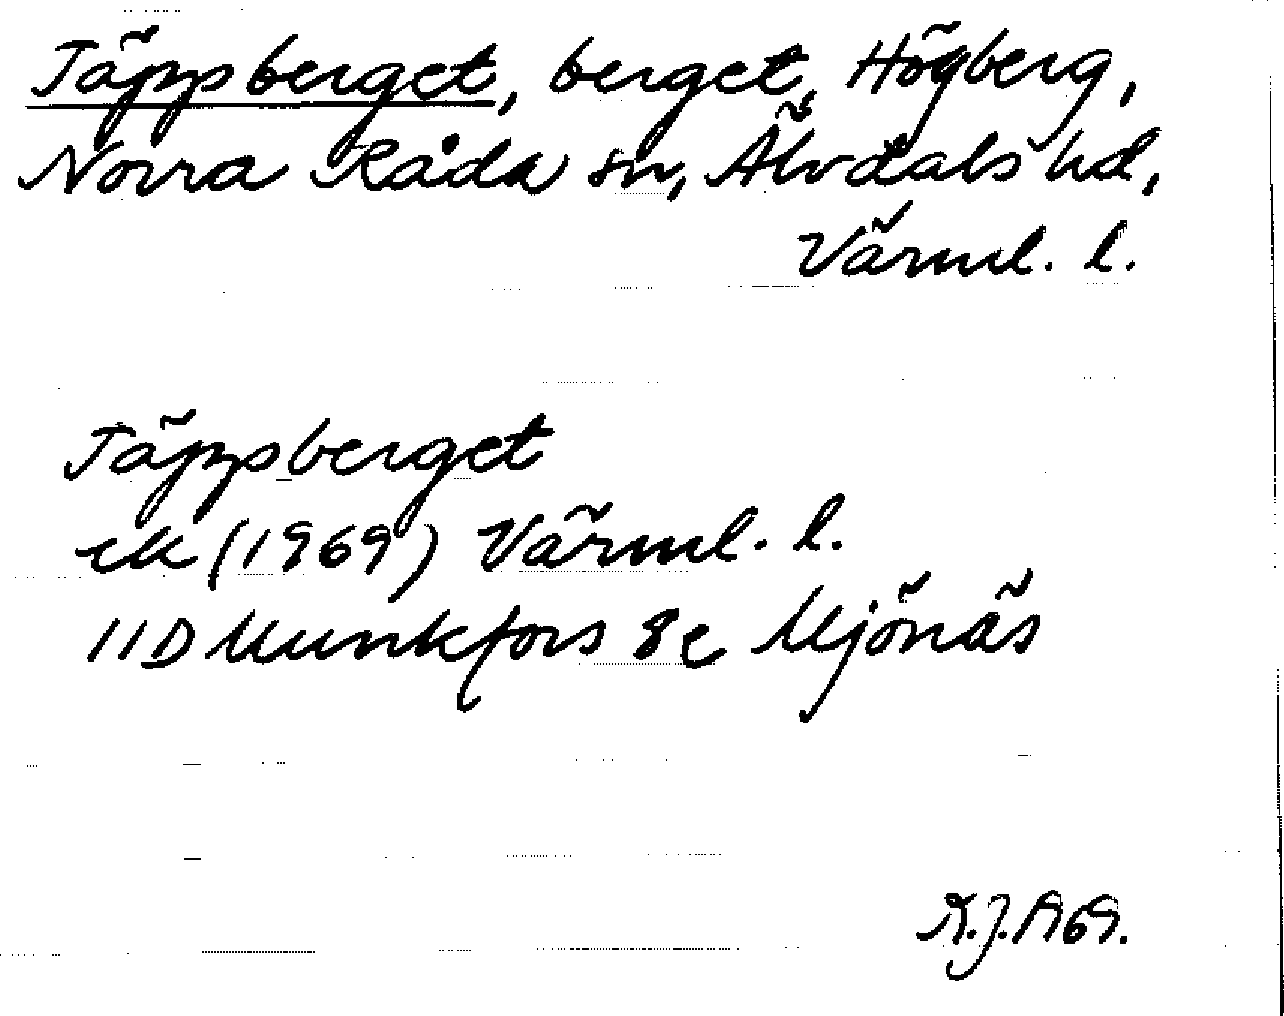 Täppsberget, berget, Högberg,
Norra Råda sn, Älvdals hd,
Värml. l.
Täppsberget
ek (1969) Värml. l.
11D Munkfors 8e Mjönäs
R.J. 1969.